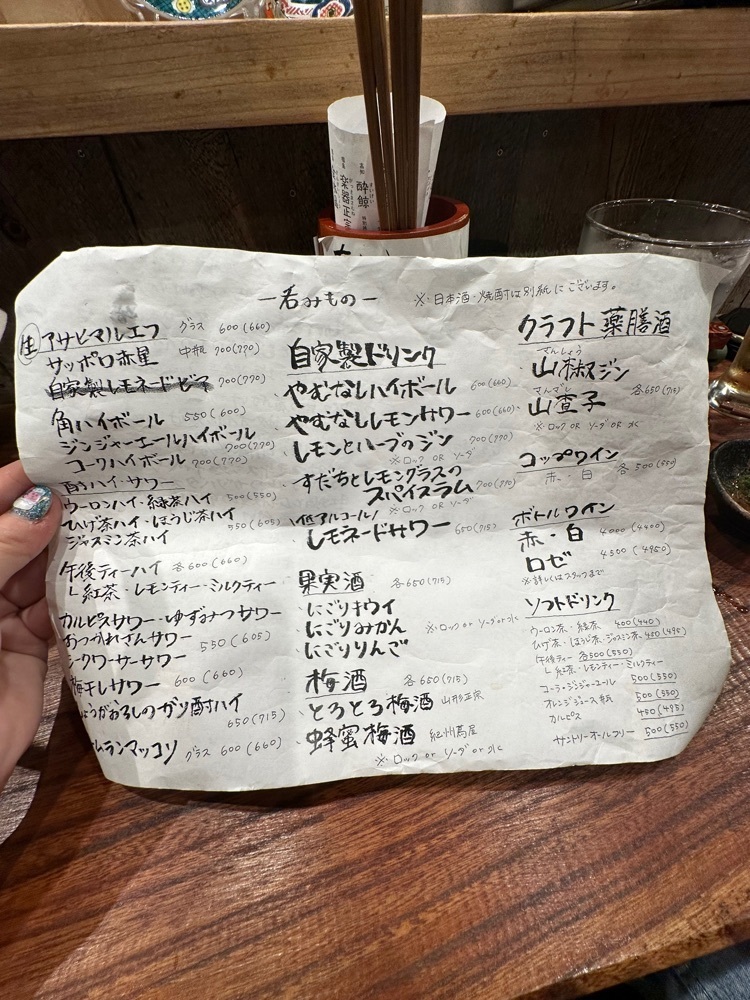 酔鯨
楽器正宗
一呑みもの一
※日本酒・焼酎は別紙にございます。
生 アサヒマルエフ グラス 600(660)
サッポロ赤星 中瓶 700(770)
自家製レモネードビア 700(770)
角ハイボール 550(600)
ジンジャーエールハイボール 700(770)
コークハイボール 700(770)
酎ハイ・サワー
ウーロンハイ・緑茶ハイ 500(550)
ひげ茶ハイ・ほうじ茶ハイ
ジャスミン茶ハイ 550(605)
午後ティーハイ 各600(660)
└紅茶・レモンティー・ミルクティー
カルピスサワー・ゆずみつサワー
おつかれさんサワー 550(605)
シークワーサーサワー
梅干しサワー 600(660)
しょうがおろしのガツ酎ハイ
650(715)
ムランマッコリ グラス 600(660)
自家製ドリンク
やむなしハイボール 600(660)
やむなしレモンサワー 600(660)
レモンとハーブのジン 700(770)
※ロック or ソーダ
すだちとレモングラスの
スパイスラム 700(770)
※ロック or ソーダ
\低アルコール/
レモネードサワー 650(715)
果実酒 各650(715)
にごりキウイ
にごりみかん ※ロック or ソーダ or 水
にごりりんご
梅酒 各650(715)
とろとろ梅酒 山形正宗
蜂蜜梅酒 紀州蔦屋
※ロック or ソーダ or 水
クラフト薬膳酒
さんしょう
山椒ジン
さんざし
山査子 各650(715)
※ロック OR ソーダ OR 水
コップワイン
赤・白 各500(550)
ボトルワイン
赤・白 4000(4400)
ロゼ 4500(4950)
※詳しくはスタッフまで
ソフトドリンク
ウーロン茶・緑茶 400(440)
ひげ茶・ほうじ茶・ジャスミン茶 450(495)
午後ティー 各500(550)
└紅茶・レモンティー・ミルクティー
コーラ・ジンジャーエール 500(550)
オレンジジュース 500(550)
カルピス 450(495)
サントリーオールフリー 500(550)